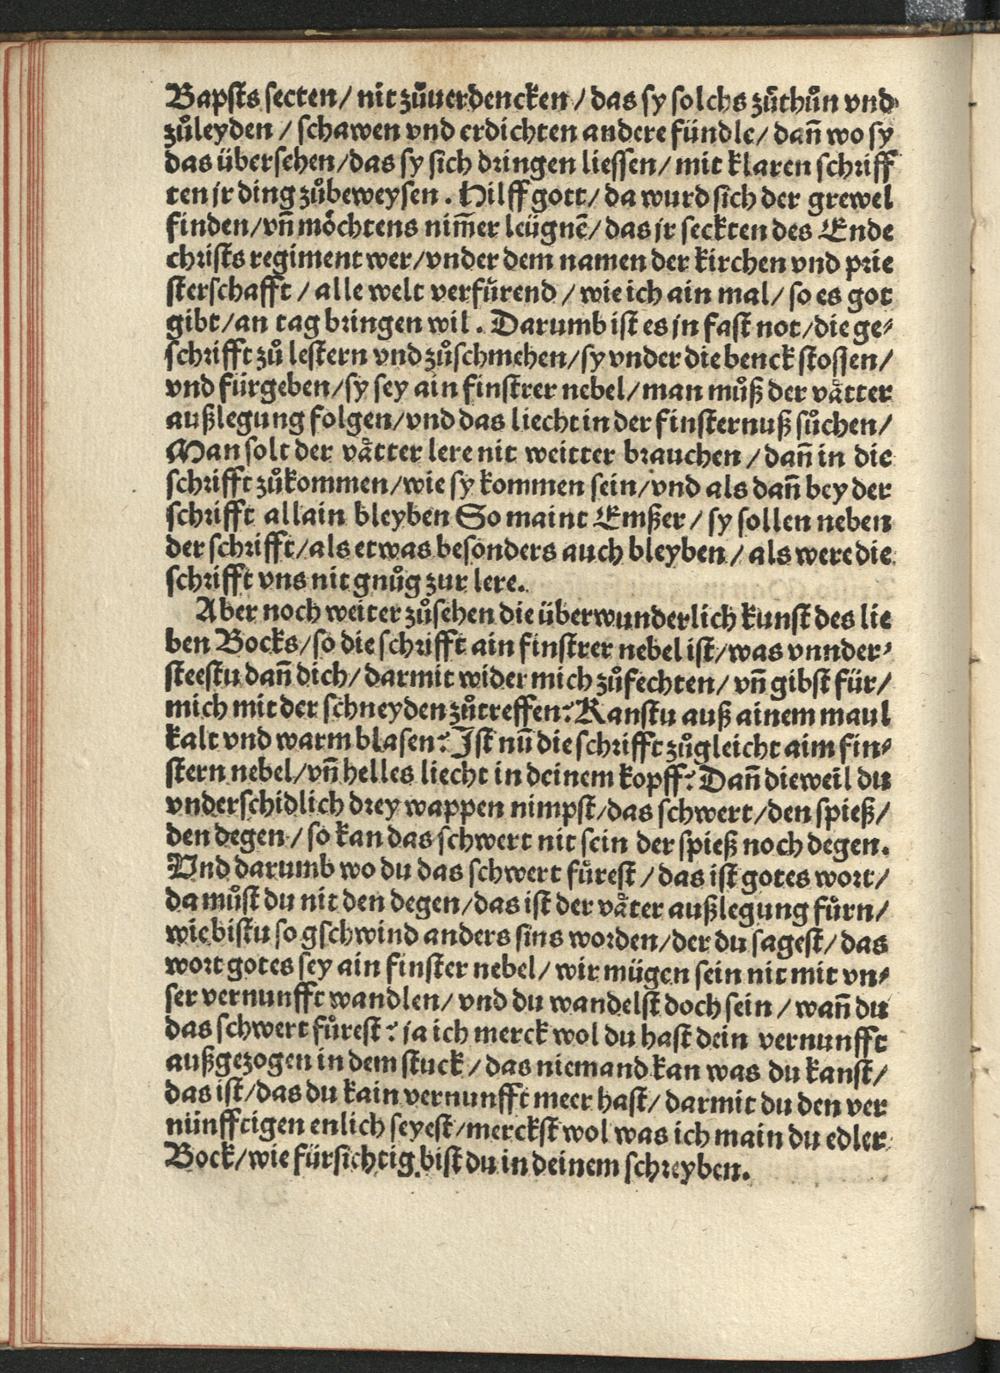 Bapsts secten/ nit zůuerdencken/ das sy solchs zůthůn vnd
zůleyden / schawen vnd erdichten andere fündle/ dañ wo sy
das übersehen/das sy sich dringen liessen/ mit klaren schriff
ten jr ding zůbeweysen. Hilff gott/ da wurd sich der grewel
finden/vñ möchtens nim̃er leügnē/ das jr seckten des Ende
christs regiment wer/vnder dem namen der kirchen vnd prie
sterschafft / alle welt verfůrend / wie ich ain mal/ so es got
gibt/an tag bringen wil. Darumb ist es jn fast not/die ge⸗
schrifft zů lestern vnd zůschmehen/sy vnder die benck stossen/
vnd fürgeben/sy sey ain finstrer nebel/man můß der vaͤtter
außlegung folgen/vnd das liecht in der finsternuß sůchen/
Man solt der vaͤtter lere nit weitter brauchen/ dañ in die
schrifft zůkommen/wie sy kommen sein/vnd als dañ bey der
schrifft allain bleyben So maint Emßer/ sy sollen neben
der schrifft/als etwas besonders auch bleyben/ als were die
schrifft vns nit gnůg zur lere.
Aber noch weiter zůsehen die überwunderlich kunst des lie
ben Bocks/so die schrifft ain finstrer nebel ist/was vnnder⸗
steestu dañ dich/ darmit wider mich zůfechten/ vñ gibst für/
mich mit der schneyden zůtreffen? Kanstu auß ainem maul
kalt vnd warm blasen? Ist nū die schrifft zůgleicht aim fin⸗
stern nebel/vñ helles liecht in deinem kopff? Dañ dieweil du
vnderschidlich drey wappen nimpst/das schwert/den spieß/
den degen/ so kan das schwert nit sein der spieß noch degen.
Vnd darumb wo du das schwert fůrest/ das ist gotes wort/
da můst du nit den degen/das ist der vaͤter außlegung fůrn/
wie bistu so gschwind anders sins worden/der du sagest/ das
wort gotes sey ain finster nebel/ wir mügen sein nit mit vn⸗
ser vernunfft wandlen/ vnd du wandelst doch sein / wañ du
das schwert fůrest? ja ich merck wol du hast dein vernunfft
außgezogen in dem stuck / das niemand kan was du kanst/
das ist/das du kain vernunfft meer hast/ darmit du den ver
nünfftigen enlich seyest/merckst wol was ich main du edler
Bock/wie fürsichtig bist du in deinem schreyben.